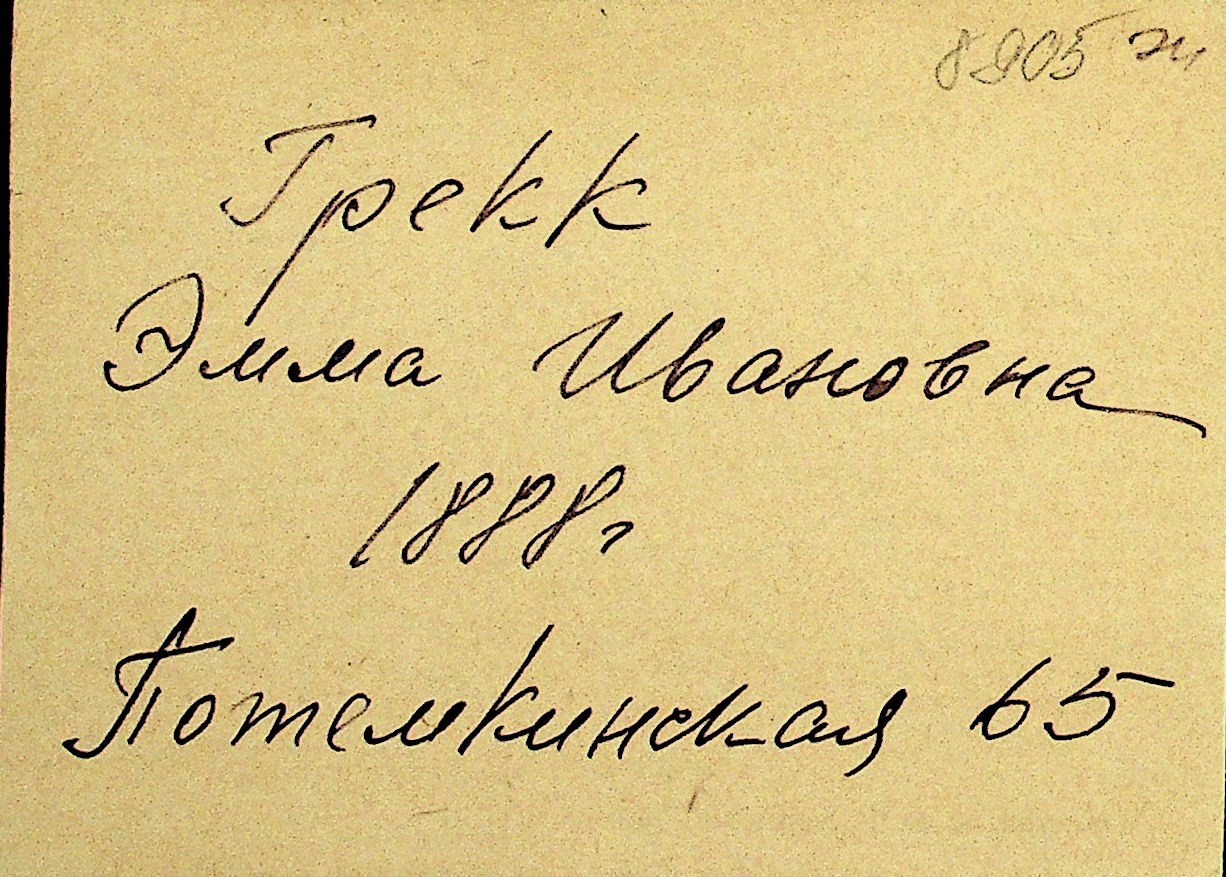 8905 ж
Грекк
Эмма Ивановна
1888г
Потемкинская 65